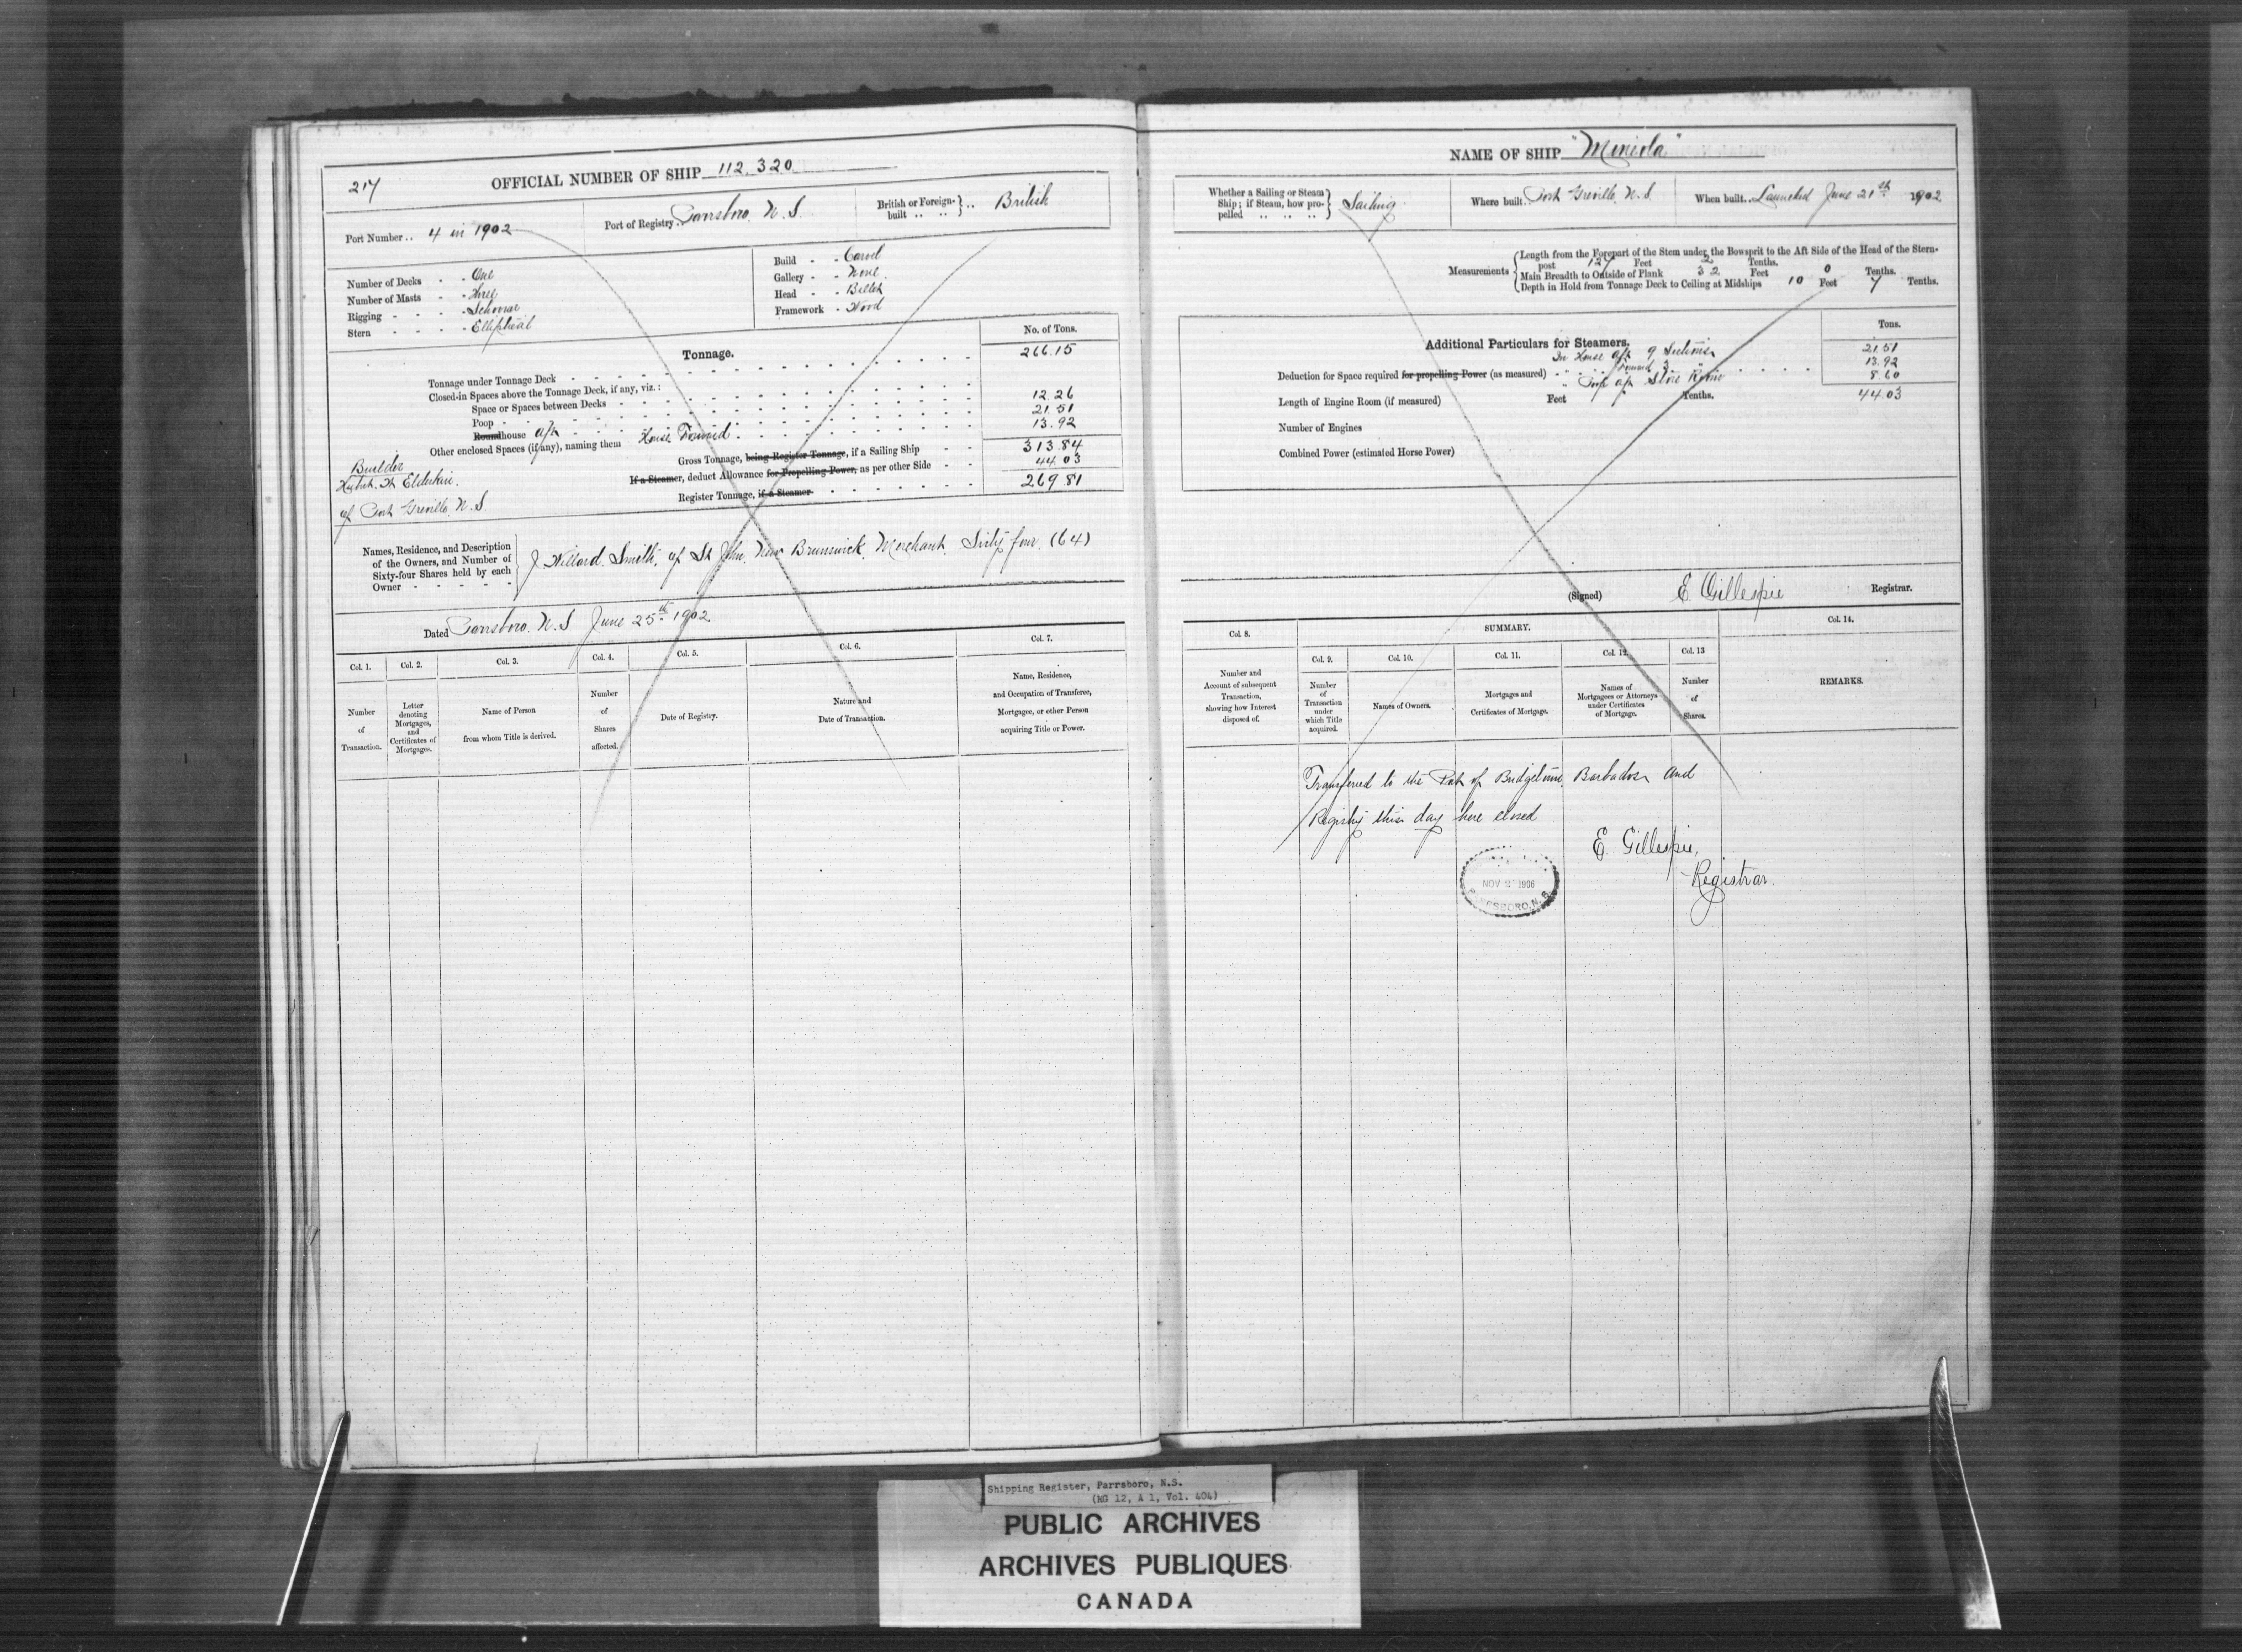 217
OFFICIAL NUMBER OF SHIP 112,320
Port Number .. 4 in 1902
Port of Registry .. Parrsboro, N.S.
British or Foreign-built .. .. } .. British
Number of Decks - - One
Number of Masts - - Three
Rigging - - - - Schooner
Stern - - - - Elliptical
Build - - Carvel
Gallery - - None
Head - - Billet
Framework - Wood
Tonnage.
No. of Tons.
Tonnage under Tonnage Deck 266.15
Closed-in Spaces above the Tonnage Deck, if any, viz.:
Space or Spaces between Decks
Poop 12.26
Roundhouse aft 21.51
Other enclosed Spaces (if any), naming them House Forward 13.92
Gross Tonnage, being Register Tonnage, if a Sailing Ship 313.84
If a Steamer, deduct Allowance for Propelling Power, as per other Side 44.03
Register Tonnage, if a Steamer 269.81
Builder
Elderkin.
of Port Greville, N.S.
Names, Residence, and Description of the Owners, and Number of Sixty-four Shares held by each Owner
J. Willard Smith, of St John, New Brunswick, Merchant, Sixty four (64)
Dated Parrsboro, N.S June 25th 1902
Col. 1.
Col. 2.
Col. 3.
Col. 4.
Col. 5.
Col. 6.
Col. 7.
Number of Transaction.
Letter denoting Mortgages, and Certificates of Mortgages.
Name of Person from whom Title is derived.
Number of Shares affected.
Date of Registry.
Nature and Date of Transaction.
Name, Residence, and Occupation of Transferee, Mortgagee, or other Person acquiring Title or Power.
NAME OF SHIP "Miniola"
Whether a Sailing or Steam Ship; if Steam, how propelled .. .. .. } Sailing
Where built .. Port Greville, N.S.
When built .. Launched June 21st 1902
Measurements
Length from the Forepart of the Stem under the Bowsprit to the Aft Side of the Head of the Stern-
post 127 Feet 2 Tenths.
Main Breadth to Outside of Plank 32 Feet 0 Tenths.
Depth in Hold from Tonnage Deck to Ceiling at Midships 10 Feet 7 Tenths.
Additional Particulars for Steamers.
Tons.
In House aft 9 Sections 21.51
Deduction for Space required for propelling Power (as measured) - " forward 3 " 13.92
" Poop aft Store Room 8.60
Length of Engine Room (if measured) Feet Tenths. 44.03
Number of Engines
Combined Power (estimated Horse Power)
(Signed) E. Gillespie Registrar.
Col. 8.
SUMMARY.
Col. 14.
Col. 9.
Col. 10.
Col. 11.
Col. 12.
Col. 13
Number and Account of subsequent Transaction, showing how Interest disposed of.
Number of Transaction under which Title acquired.
Names of Owners.
Mortgages and Certificates of Mortgage.
Names of Mortgagees or Attorneys under Certificates of Mortgage.
Number of Shares.
REMARKS.
Transferred to the Port of Bridgetown, Barbados and
Registry this day here closed
E. Gillespie,
Registrar.
NOV 2 1906
PARRSBORO, N.S.
Shipping Register, Parrsboro, N.S.
(RG 12, A 1, Vol. 404)
PUBLIC ARCHIVES
ARCHIVES PUBLIQUES
CANADA